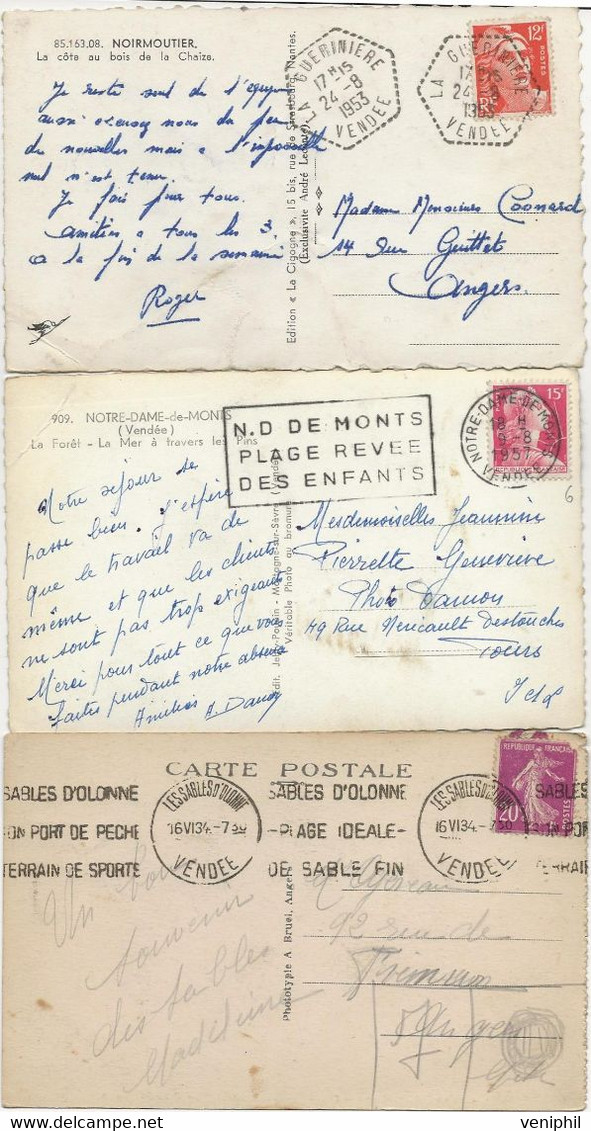 85.163.08. NOIRMOUTIER.
La côte au bois de la Chaize.
LA GUERINIERE
17 H 15
24-8
1953
VENDEE
LA GUERINIERE
17 H 15
24-8
1953
VENDEE
12F
POSTES
RF
Je reste seul de l'équipe
aussi excusez nous du peu
de nouvelles mais à l'impossible
nul n'est tenu.
Je fais pour tous.
amitiés à tous les 3.
à la fin de la semaine
Roger
Edition « La Cigogne », 15 bis, rue de Strasbourg, Nantes.
(Exclusivité André Leconte)
Madame Coonard
14 Rue Guittet
Angers.
909. NOTRE-DAME-de-MONTS
(Vendée)
La Forêt - La Mer à travers les Pins
N.D DE MONTS
PLAGE REVEE
DES ENFANTS
NOTRE-DAME-DE-MONTS
18 H
9-8
1957
VENDEE
15F
6
Notre séjour se
passe bien. J'espère
que le travail va de
même et que les clients
ne sont pas trop exigeants
Merci pour tout ce que vous
faites pendant notre absence
Amitiés
Edit. Poupin - Mortagne-sur-Sèvre (Vendée)
Véritable Photo au bromure
Mesdemoiselles Jeannine
Pierrette Geneviève
Photo
49 Rue Néricault Destouches
Tours
I et L
CARTE POSTALE
SABLES D'OLONNE
ON PORT DE PECHE
TERRAIN DE SPORTS
LES SABLES D'OLONNE
16 VI 34 - 7 30
VENDEE
SABLES D'OLONNE
-PLAGE IDEALE-
DE SABLE FIN
LES SABLES D'OLONNE
16 VI 34 - 7 30
VENDEE
SABLES
ON POR
TERRAIN
REPUBLIQUE FRANÇAISE
20c
POSTES
Un bon
souvenir
des Sables
Madeleine
Phototypie A. Bruel, Angers
92 rue de
Frémur
Angers
veniphil